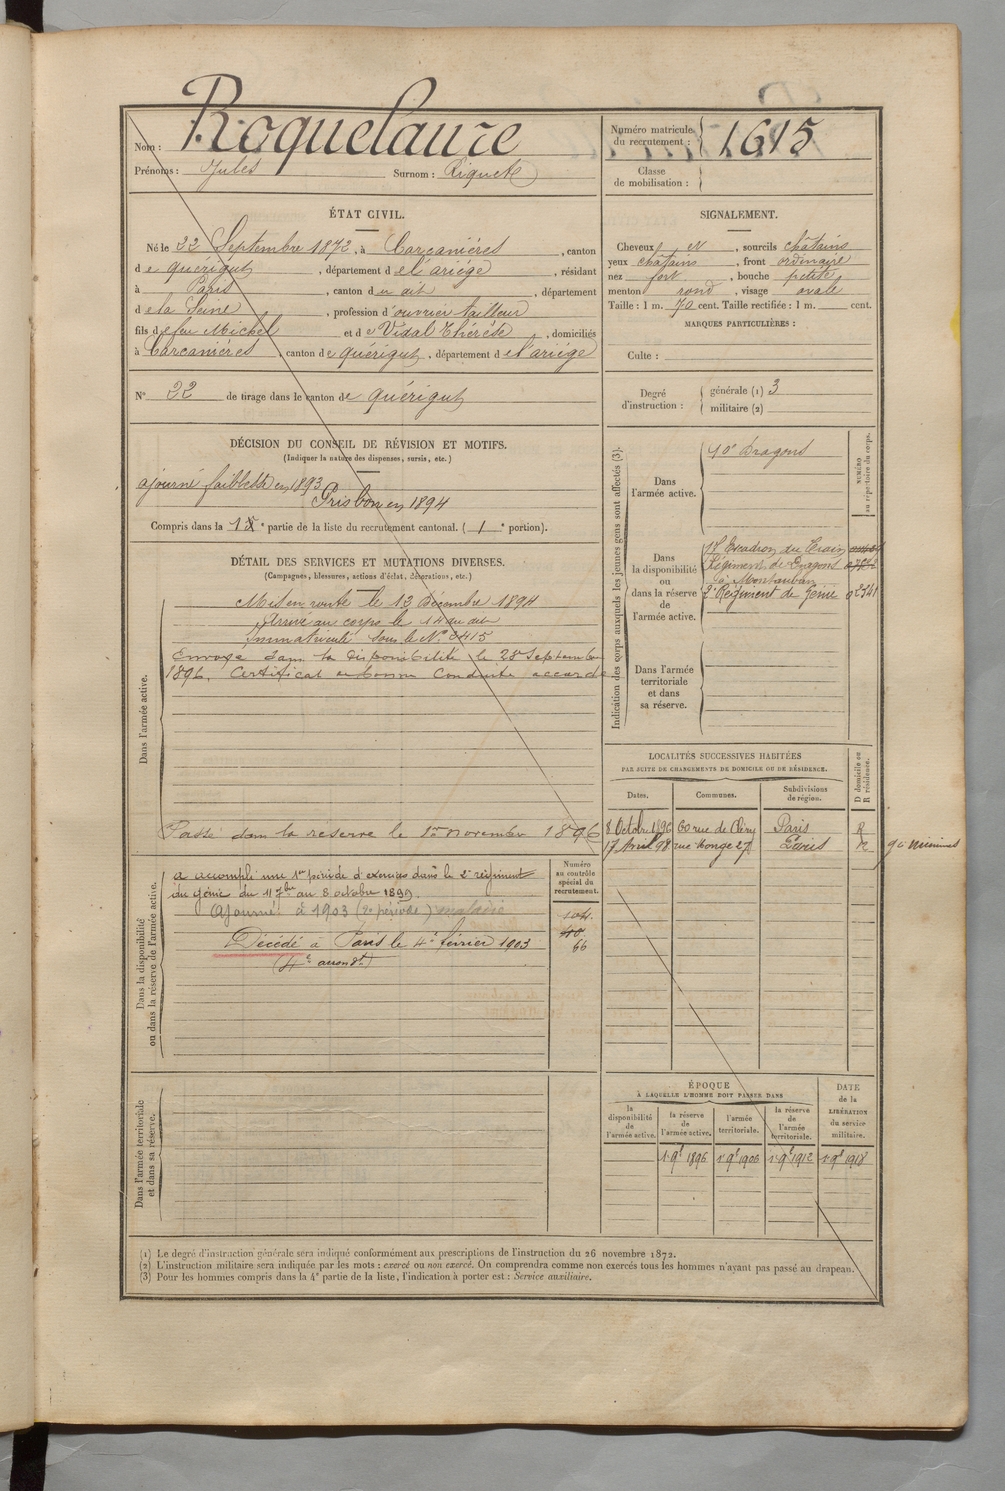 Nom : Roquelaure
Prénoms : Jules Surnom : Riquet
Numéro matricule du recrutement : 1615
Classe de mobilisation :
ÉTAT CIVIL.
Né le 22 Septembre 1872, à Carcaniérés, canton
de quérigut, département de l'ariége, résidant
à Paris, canton du dit, département
de la Seine, profession d'ouvrier tailleur
fils de feu Michel et de Vidal Thérése, domiciliés
à Carcaniérés, canton de quérigut, département de l'ariége
SIGNALEMENT.
Cheveux et, sourcils châtains
yeux chatains, front ordinaire
nez fort, bouche petite,
menton rond, visage ovale
Taille : 1 m. 70 cent. Taille rectifiée : 1 m. cent.
MARQUES PARTICULIÈRES :
Culte :
N° 22 de tirage dans le canton de quérigut
Degré d'instruction : générale (1) 3
militaire (2)
DÉCISION DU CONSEIL DE RÉVISION ET MOTIFS.
(Indiquer la nature des dispenses, sursis, etc.)
ajourné faiblesse en 1893
Pris bon en 1894
Compris dans la 1e partie de la liste du recrutement cantonal. ( 1e portion).
DÉTAIL DES SERVICES ET MUTATIONS DIVERSES.
(Campagnes, blessures, actions d'éclat, décorations, etc.)
Dans l'armée active.
Mis en route le 13 Décembre 1894
Arrivé au corps le 14 du dit
Immatriculé sous le N° 0415
Envoyé dans la disponibilité le 28 Septembre
1896. Certificat de bonne conduite accordé
Passé dans la réserve le 1er novembre 1896
Indication des corps auxquels les jeunes gens sont affectés (3).
NUMÉRO au répertoire du corps.
Dans l'armée active.
10e Dragons
Dans la disponibilité ou dans la réserve de l'armée active.
Escadron du Train
Régiment de Dragons
à Montauban
2e Régiment de Génie 02341
Dans l'armée territoriale et dans sa réserve.
LOCALITÉS SUCCESSIVES HABITÉES
PAR SUITE DE CHANGEMENTS DE DOMICILE OU DE RÉSIDENCE.
Dates. Communes. Subdivisions de région. D domicile ou R résidence.
8 Octobre 1896 60 rue de Cléry Paris R
17 Avril 98 rue Monge 27 Paris R
Dans la disponibilité ou dans la réserve de l'armée active.
Numéro au contrôle spécial du recrutement.
a accompli une 1re période d'exercices dans le 2e régiment
du génie du 11 7bre au 8 octobre 1899.
Ajourné à 1903 (2e période) maladie
Décédé à Paris le 4 février 1903
(4e arrondt)
66
Dans l'armée territoriale et dans sa réserve.
ÉPOQUE
À LAQUELLE L'HOMME DOIT PASSER DANS
la disponibilité de l'armée active. la réserve de l'armée active. l'armée territoriale. la réserve de l'armée territoriale.
DATE de la LIBÉRATION du service militaire.
1 9e 1896 1 9e 1906 1 9e 1912 1 9e 1918
(1) Le degré d'instruction générale sera indiqué conformément aux prescriptions de l'instruction du 26 novembre 1872.
(2) L'instruction militaire sera indiquée par les mots : exercé ou non exercé. On comprendra comme non exercés tous les hommes n'ayant pas passé au drapeau.
(3) Pour les hommes compris dans la 4e partie de la liste, l'indication à porter est : Service auxiliaire.